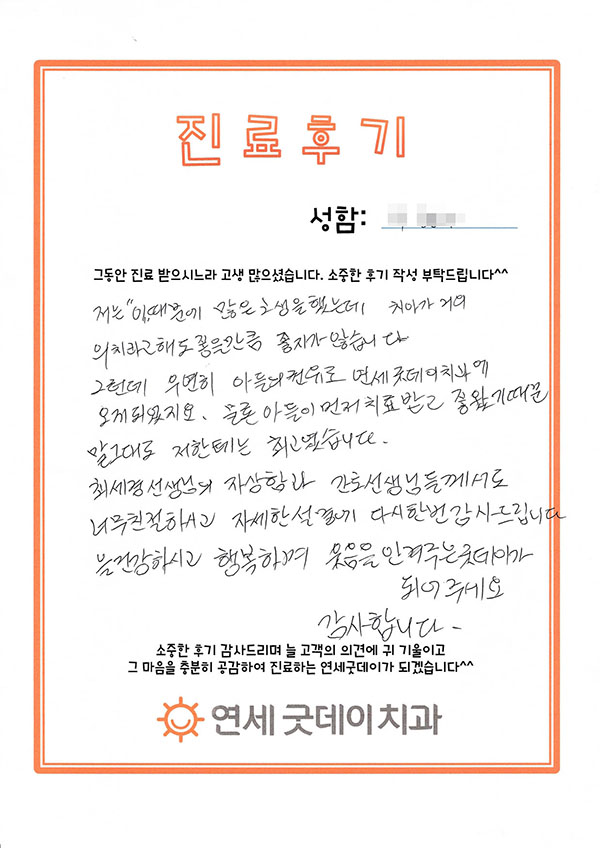 진료후기
성함:
그동안 진료 받으시느라 고생 많으셨습니다. 소중한 후기 작성 부탁드립니다^^
저는 "이"때문에 많은 고생을 했는데 치아가 거의
의치라고해도 좋을만큼 좋지가 않습니다
그런데 우연히 아들의권유로 연세굿데이치과에
오게되었지요. 물론 아들이 먼저 치료받고 좋았기때문
말그대로 저한테는 최고였습니다.
최세경선생님의 자상함과 간호선생님들께서도
너무친절하시고 자세한설명에 다시한번 감사드립니다
늘건강하시고 행복하며 웃음을 안겨주는굿데이가
되어주세요
감사합니다.
소중한 후기 감사드리며 늘 고객의 의견에 귀 기울이고
그 마음을 충분히 공감하여 진료하는 연세굿데이가 되겠습니다^^
연세굿데이치과